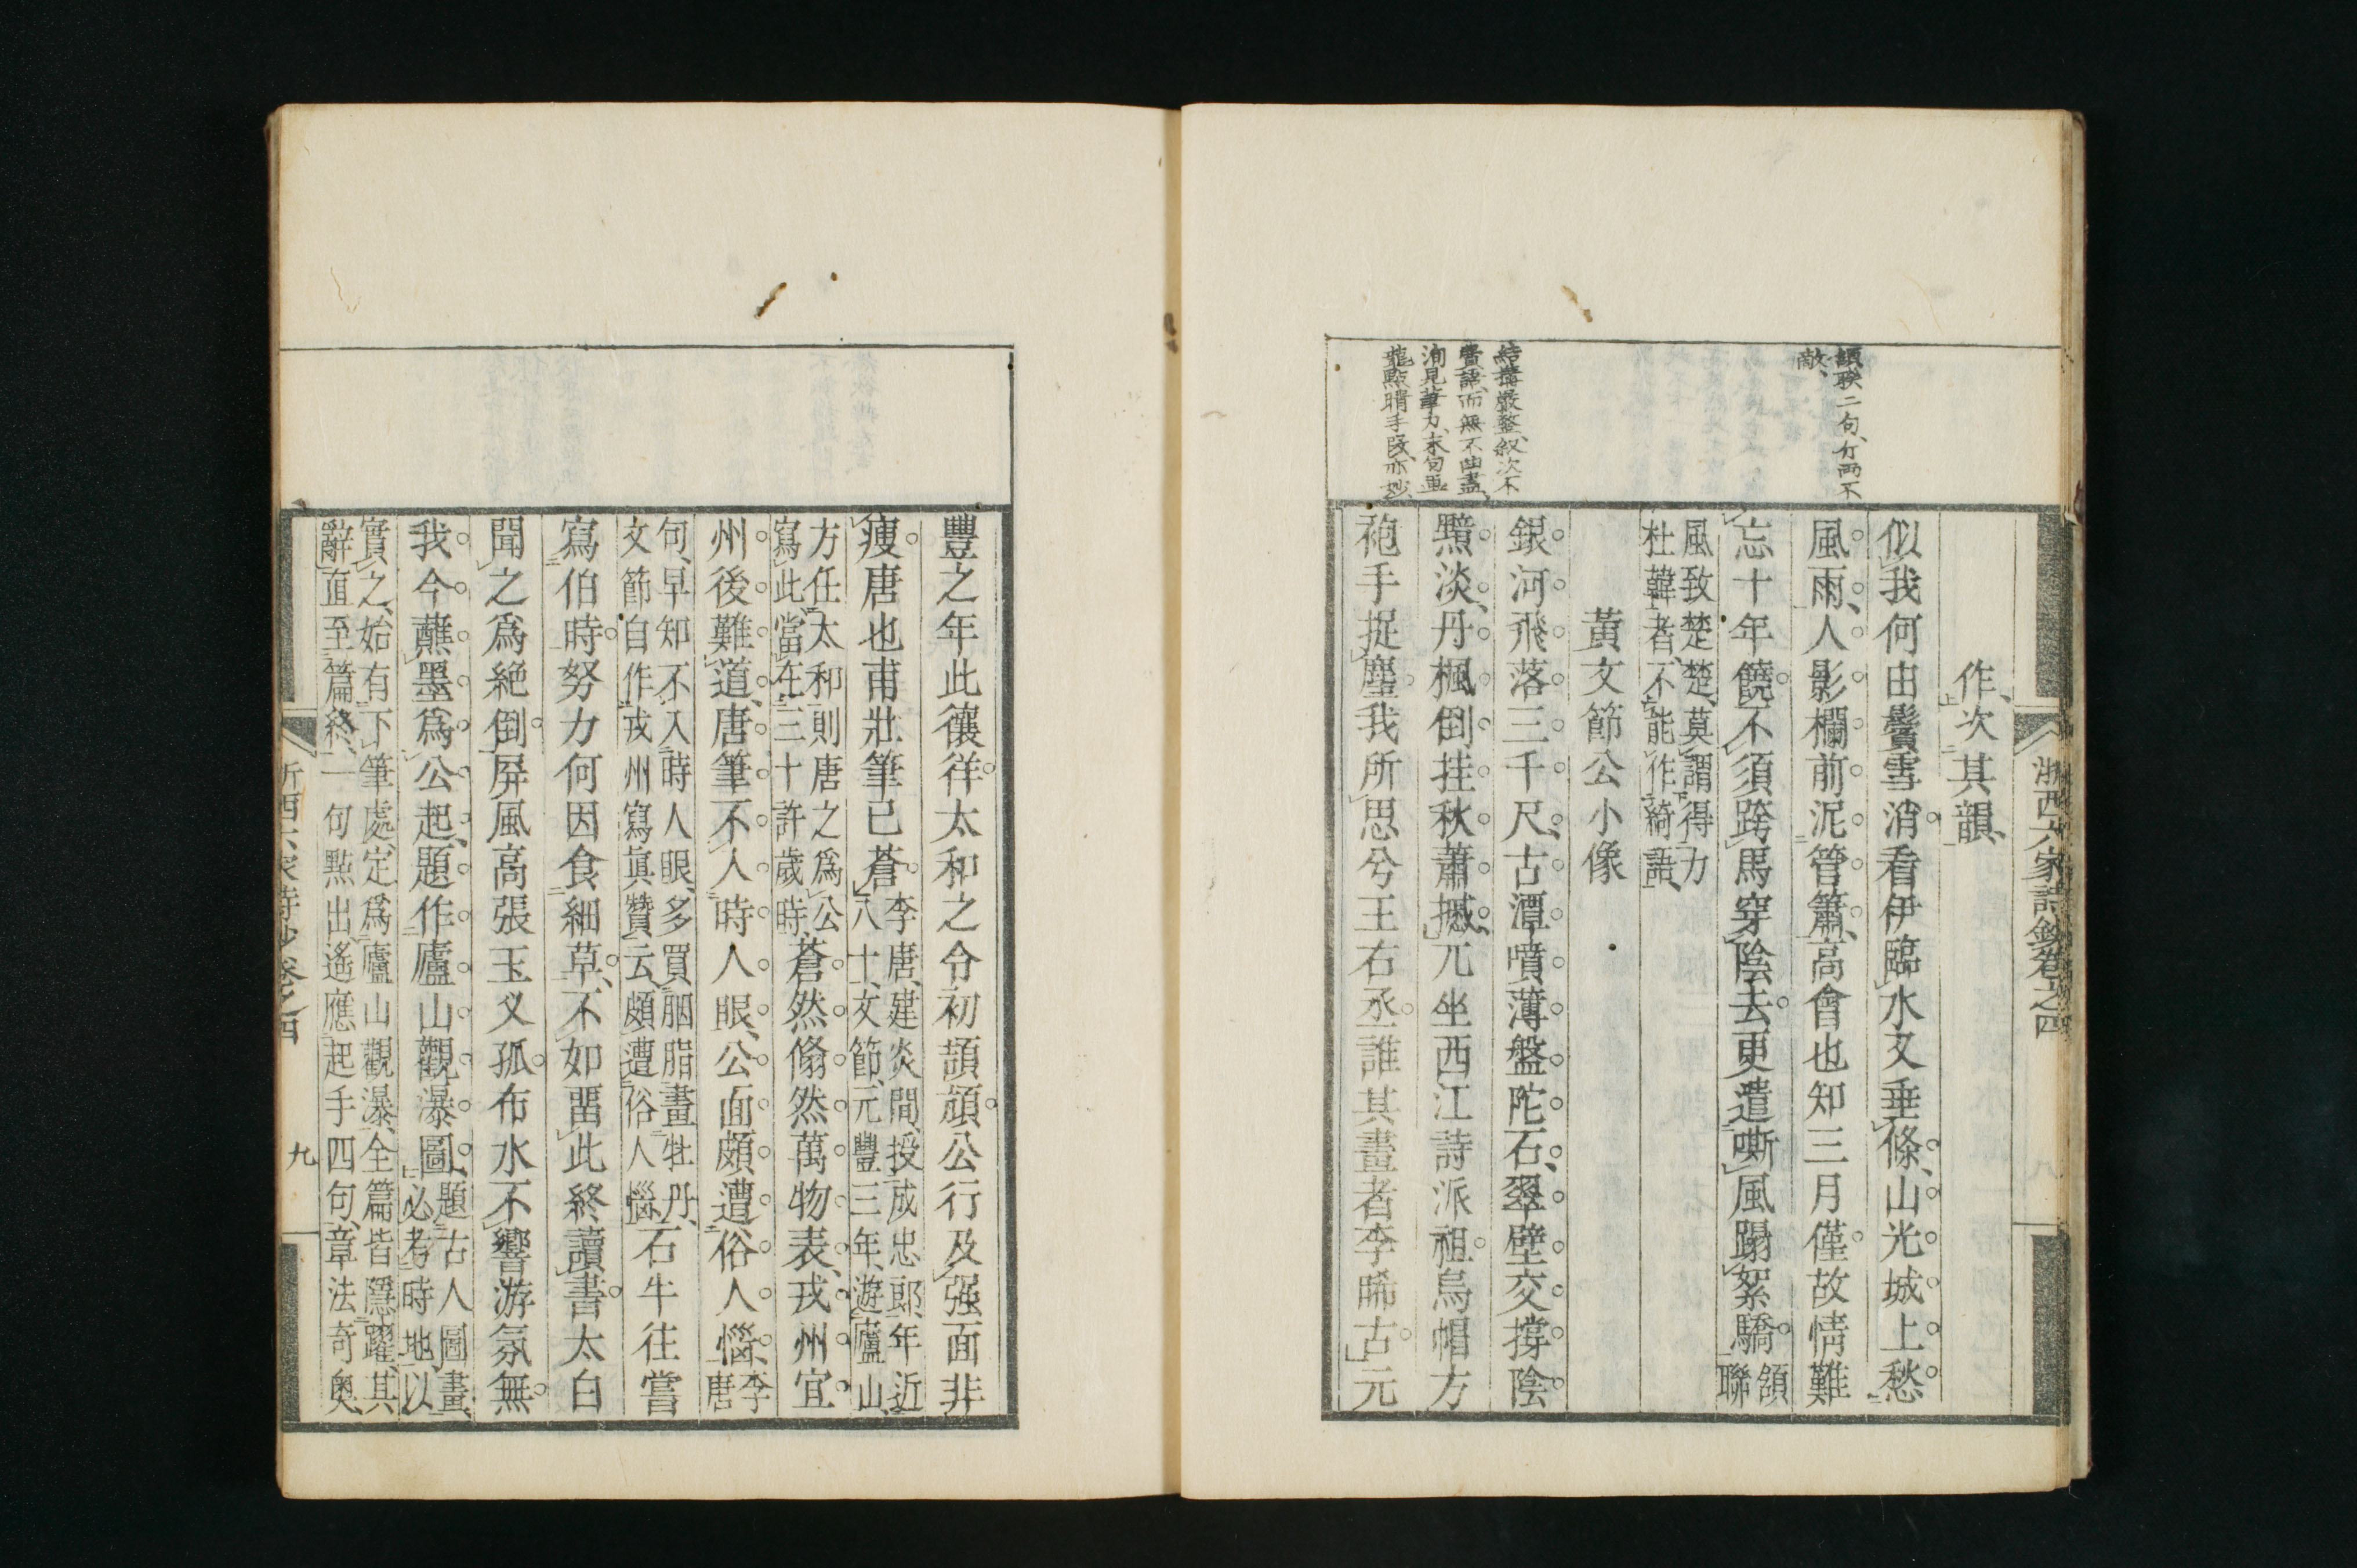 浙西六家詩鈔卷之四
頷聯二句、斤兩不
敵、
結構嚴整、叙次不
費語、而無不曲盡、
洵見筆力、末句畫
龍點睛手段、亦妙、
作、次其韻、
似我何由鬢雪消看伊臨水又垂條、山光城上愁
風雨、人影欄前泥管簫、高會也知三月僅故情難
忘十年饒不須跨馬穿陰去更遣嘶風蹋絮驕頷
聯
風致楚楚、莫謂得力
杜韓者、不能作綺語、
黃文節公小像
銀河飛落三千尺、古潭噴薄盤陀石、翠壁交撐陰
黯淡、丹楓倒挂秋蕭摵、兀坐西江詩派祖烏帽方
袍手捉麈我所思兮王右丞誰其畫者李晞古元
豐之年此徉太和之令初頡頏公行及强面非
瘦唐也甫壯筆已蒼
李唐、建炎間、授成忠郎、年近
八十、文節、元豐三年、遊廬山、
方任太和、則唐之爲公
寫此、當在三十許歲時、
蒼然翛然萬物表、戎州宜
州後難道、唐筆不入時人眼、公面頗遭俗人惱、
李
唐
句、早知不入時人眼、多買胭脂畫牡丹、
文節自作戎州寫眞贊云、頗遭俗人惱、
石牛往嘗
寫伯時努力何因食細草、不如畱此終讀書太白
聞之爲絕倒屛風高張玉义孤布水不響游氛無
我今蘸墨爲公起、題作廬山觀瀑圖、
題古人圖畫、
必考時地、以
實之、始有下筆處、定爲廬山觀瀑、全篇皆隱躍、其
辭直至篇終、一句點出、遙應起手四句、章法奇奧、
九